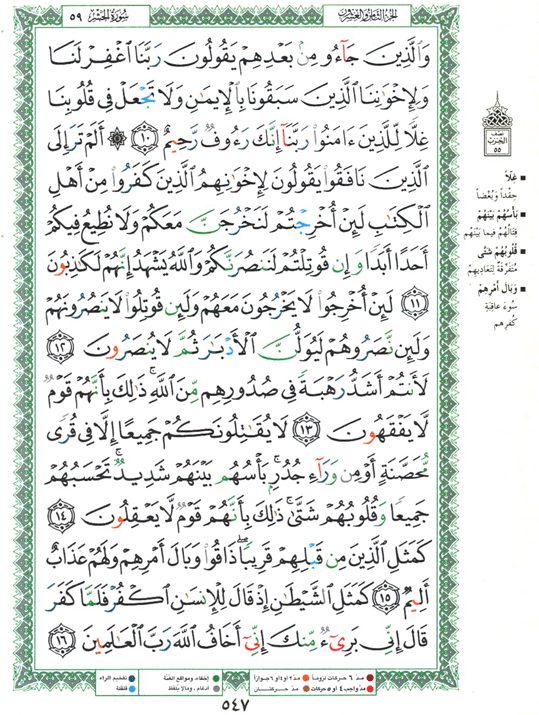 الجزء الثامن والعشرون
سورة الحشر
٥٩
وَالَّذِينَ جَآءُو مِنۢ بَعْدِهِمْ يَقُولُونَ رَبَّنَا ٱغْفِرْ لَنَا
وَلِإِخْوَٰنِنَا ٱلَّذِينَ سَبَقُونَا بِٱلْإِيمَٰنِ وَلَا تَجْعَلْ فِى قُلُوبِنَا
غِلًّا لِّلَّذِينَ ءَامَنُوا۟ رَبَّنَآ إِنَّكَ رَءُوفٌ رَّحِيمٌ ﴿١٠﴾ ۞ أَلَمْ تَرَ إِلَى
ٱلَّذِينَ نَافَقُوا۟ يَقُولُونَ لِإِخْوَٰنِهِمُ ٱلَّذِينَ كَفَرُوا۟ مِنْ أَهْلِ
ٱلْكِتَٰبِ لَئِنْ أُخْرِجْتُمْ لَنَخْرُجَنَّ مَعَكُمْ وَلَا نُطِيعُ فِيكُمْ
أَحَدًا أَبَدًا وَإِن قُوتِلْتُمْ لَنَنصُرَنَّكُمْ وَٱللَّهُ يَشْهَدُ إِنَّهُمْ لَكَٰذِبُونَ
﴿١١﴾ لَئِنْ أُخْرِجُوا۟ لَا يَخْرُجُونَ مَعَهُمْ وَلَئِن قُوتِلُوا۟ لَا يَنصُرُونَهُمْ
وَلَئِن نَّصَرُوهُمْ لَيُوَلُّنَّ ٱلْأَدْبَٰرَ ثُمَّ لَا يُنصَرُونَ ﴿١٢﴾
لَأَنتُمْ أَشَدُّ رَهْبَةً فِى صُدُورِهِم مِّنَ ٱللَّهِ ۚ ذَٰلِكَ بِأَنَّهُمْ قَوْمٌ
لَّا يَفْقَهُونَ ﴿١٣﴾ لَا يُقَٰتِلُونَكُمْ جَمِيعًا إِلَّا فِى قُرًى
مُّحَصَّنَةٍ أَوْ مِن وَرَآءِ جُدُرٍۭ ۚ بَأْسُهُم بَيْنَهُمْ شَدِيدٌ ۚ تَحْسَبُهُمْ
جَمِيعًا وَقُلُوبُهُمْ شَتَّىٰ ۚ ذَٰلِكَ بِأَنَّهُمْ قَوْمٌ لَّا يَعْقِلُونَ ﴿١٤﴾
كَمَثَلِ ٱلَّذِينَ مِن قَبْلِهِمْ قَرِيبًا ۖ ذَاقُوا۟ وَبَالَ أَمْرِهِمْ وَلَهُمْ عَذَابٌ
أَلِيمٌ ﴿١٥﴾ كَمَثَلِ ٱلشَّيْطَٰنِ إِذْ قَالَ لِلْإِنسَٰنِ ٱكْفُرْ فَلَمَّا كَفَرَ
قَالَ إِنِّى بَرِىٓءٌ مِّنكَ إِنِّىٓ أَخَافُ ٱللَّهَ رَبَّ ٱلْعَٰلَمِينَ ﴿١٦﴾
نصف
الحزب
٥٥
غِلّاً
حِقداً وبُغضاً
بَأسُهُمْ بَيْنَهُمْ
قِتالُهُمْ فيما بَيْنَهُم
قُلُوبُهُمْ شَتَّى
مُتَفرِّقَةٌ لِتعاديهِمْ
وَبَالَ أَمْرِهِمْ
سُوءَ عاقِبَةِ
كُفرِهِم
مدّ ٦ حركات لزوماً
مدّ ٢ أو ٤ أو ٦ جوازاً
إخفاء، ومواقع الغُنَّة
تفخيم الراء
مدّ واجب ٤ أو ٥ حركات
مدّ حركتان
إدغام، وما لا يُلفَظ
قلقلة
٥٤٧